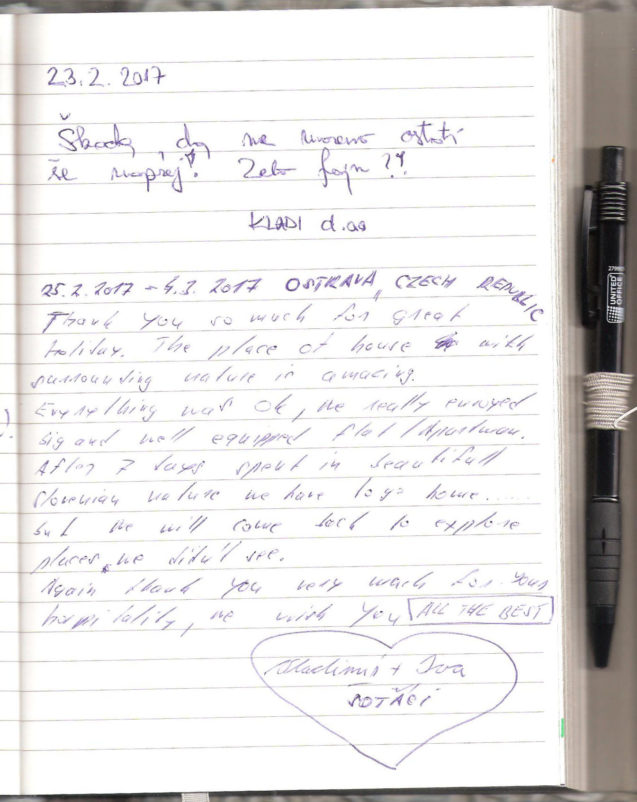 23.2.2017
Škoda, da ne moremo ostati
še naprej! Zelo fajn!!
KLADI d.o.o
25.2.2017 - 4.3.2017 OSTRAVA, CZECH REPUBLIC
Thank you so much for great
holiday. The place of house with
surrounding nature is amazing.
Everything was OK, we really enjoyed
big and well equipped flat/Apartman.
After 7 days spent in beautifull
slovenian nature we have to go home.....
but we will come back to explore
places we didn't see.
Again thank you very much for your
hospitality, we wish you ALL THE BEST
Vladimír + Iva
ŠOTÁCI
UNITED
OFFICE